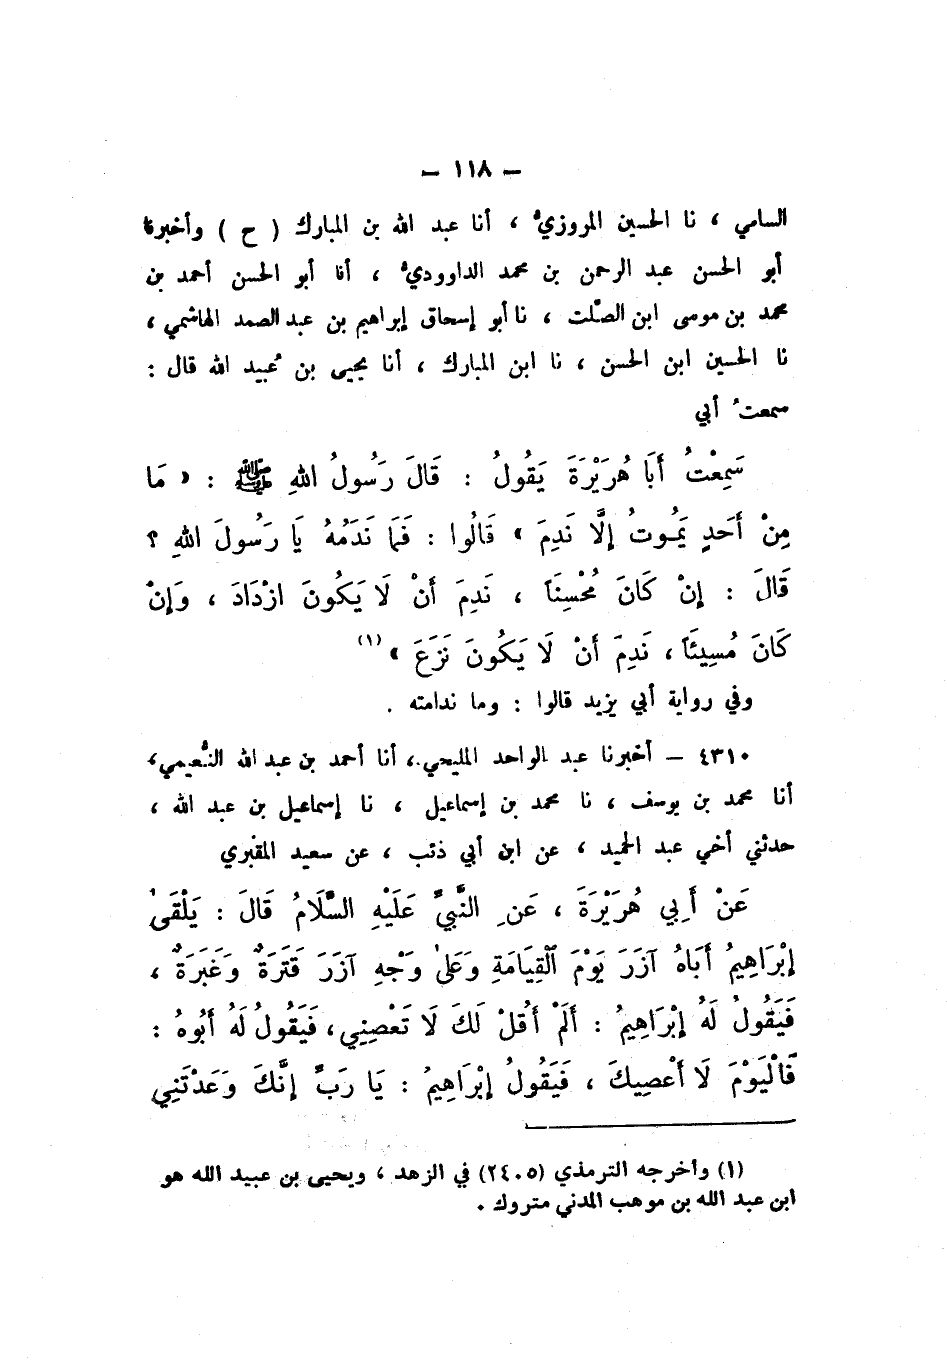 – ١١٨ –
السامي ، نا الحسين المروزيُّ ، أنا عبد الله بن المبارك ( ح ) وأخبرنا
أبو الحسن عبد الرحمن بن محمد الداووديُّ ، أنا أبو الحسن أحمد بن
محمد بن موسى ابن الصّلت ، نا أبو إسحاق إبراهيم بن عبد الصمد الهاشمي ،
نا الحسين ابن الحسن ، نا ابن المبارك ، أنا يحيى بن عُبيد الله قال :
سمعتُ أبي
سَمِعْتُ أَبَا هُرَيْرَةَ يَقُولُ : قَالَ رَسُولُ اللهِ ﷺ : « مَا
مِنْ أَحَدٍ يَمُوتُ إِلَّا نَدِمَ » قَالُوا : فَمَا نَدَمُهُ يَا رَسُولَ اللهِ ؟
قَالَ : إِنْ كَانَ مُحْسِنَاً ، نَدِمَ أَنْ لَا يَكُونَ ازْدَادَ ، وَإِنْ
كَانَ مُسِيئَاً ، نَدِمَ أَنْ لَا يَكُونَ نَزَعَ » (١)
وفي رواية أبي يزيد قالوا : وما ندامته .
٤٣١٠ – أخبرنا عبد الواحد المليحي ، أنا أحمد بن عبد الله النُّعيمي ،
أنا محمد بن يوسف ، نا محمد بن إسماعيل ، نا إسماعيل بن عبد الله ،
حدثني أخي عبد الحميد ، عن ابن أبي ذئب ، عن سعيد المقبري
عَنْ أَبِي هُرَيْرَةَ ، عَنِ النَّبِيِّ عَلَيْهِ السَّلَامُ قَالَ : يَلْقَىٰ
إِبْرَاهِيمُ أَبَاهُ آزَرَ يَوْمَ الْقِيَامَةِ وَعَلَىٰ وَجْهِ آزَرَ قَتَرَةٌ وَغَبَرَةٌ ،
فَيَقُولُ لَهُ إِبْرَاهِيمُ : أَلَمْ أَقُلْ لَكَ لَا تَعْصِنِي ، فَيَقُولُ لَهُ أَبُوهُ :
فَالْيَوْمَ لَا أَعْصِيكَ ، فَيَقُولُ إِبْرَاهِيمُ : يَا رَبِّ إِنَّكَ وَعَدْتَنِي
(١) وأخرجه الترمذي (٢٤٠٥) في الزهد ، ويحيى بن عبيد الله هو
ابن عبد الله بن موهب المدني متروك .